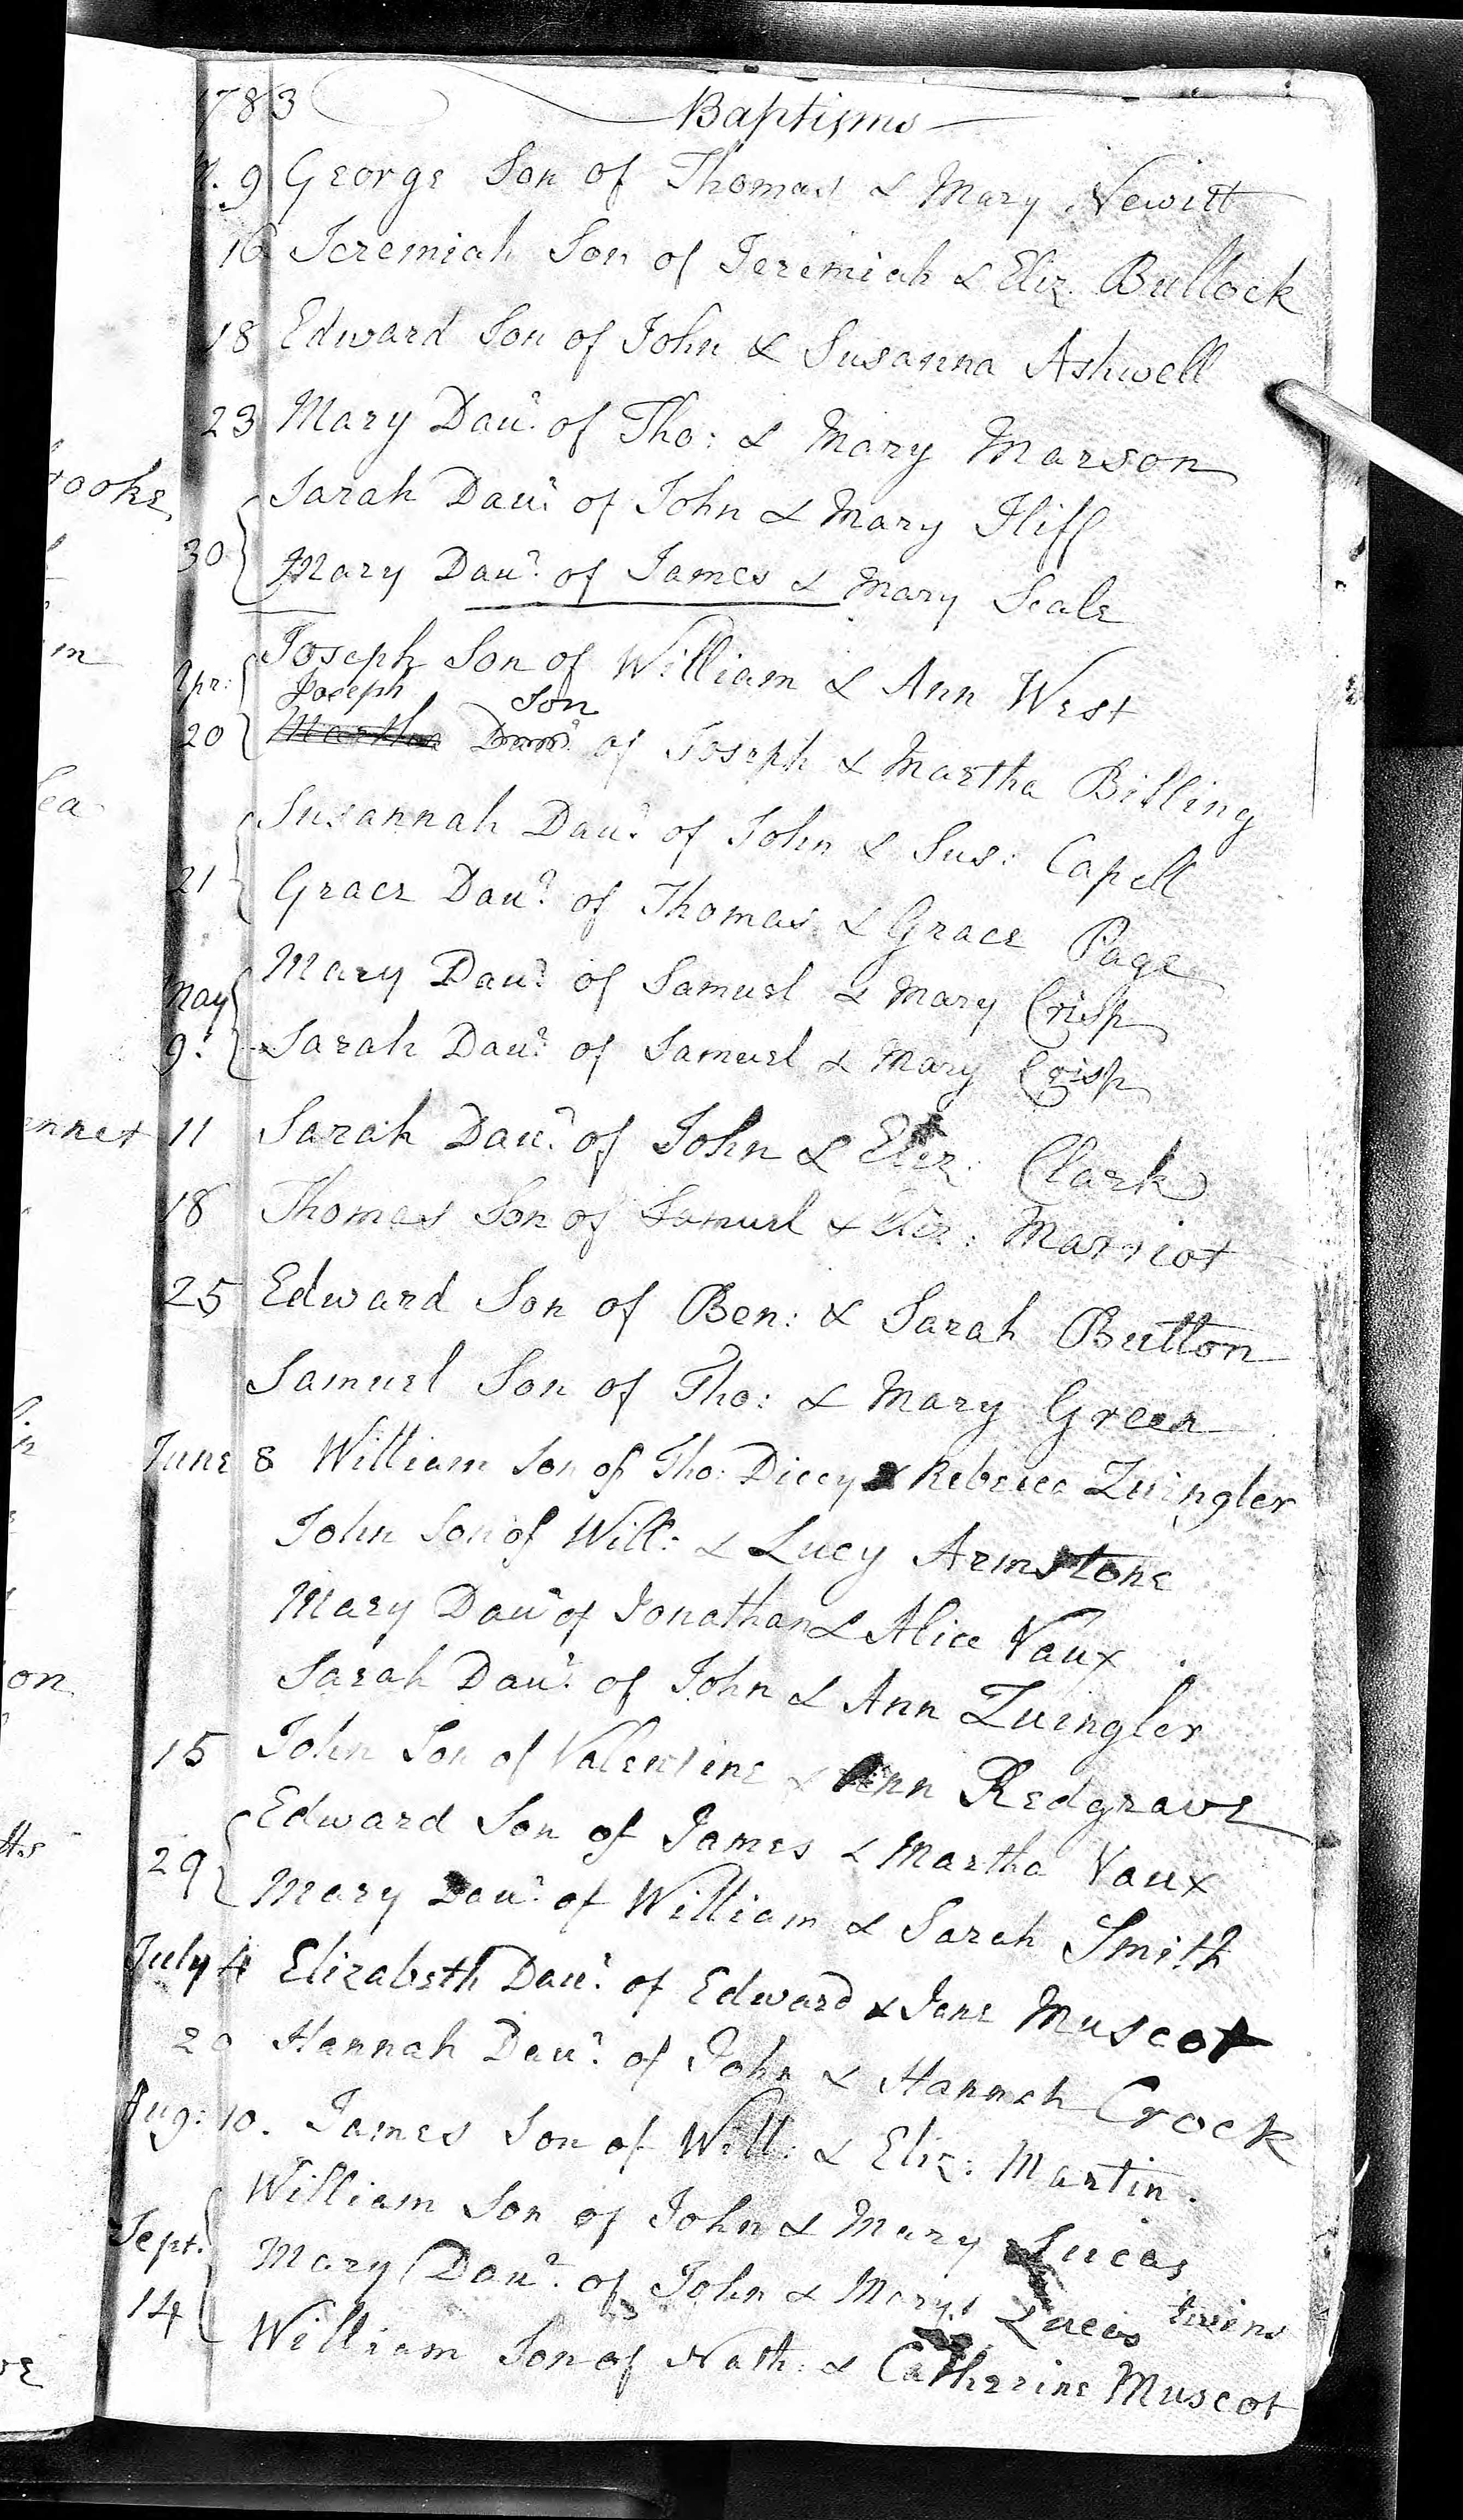 1783 Baptisms
9 George Son of Thomas & Mary Newitt
16 Jeremiah Son of Jeremiah & Eliz. Bullock
18 Edward Son of John & Susanna Ashwell
23 Mary Daur. of Tho: & Mary Marson
Sarah Daur. of John & Mary Iliff
30 Mary Daur. of James & Mary Seale
Joseph Son of William & Ann West
Apr: Joseph Son
20 Martha Daur. of Joseph & Martha Billing
Susannah Daur. of John & Sus: Capell
21 Grace Daur. of Thomas & Grace Page
May Mary Daur. of Samuel & Mary Crisp
9. Sarah Daur. of Samuel & Mary Crisp
11 Sarah Daur. of John & Eliz: Clark
18 Thomas Son of Samuel & Eliz: Marriot
25 Edward Son of Ben: & Sarah Button
Samuel Son of Tho: & Mary Green
June 8 William Son of Tho: Dicey & Rebecca Zuingler
John Son of Will: & Lucy Armstone
Mary Daur of Jonathan & Alice Vaux
Sarah Daur. of John & Ann Zuingler
15 John Son of Valentine & Ann Redgrave
Edward Son of James & Martha Vaux
29 Mary Daur. of William & Sarah Smith
July 4 Elizabeth Daur. of Edward & Jane Muscot
20 Hannah Daur. of John & Hannah Crock
Aug: 10. James Son of Will: & Eliz: Martin.
William Son of John & Mary Lucas
Sept. Mary Daur. of John & Mary Lucas twins
14 William Son of Nath: & Catherine Muscot